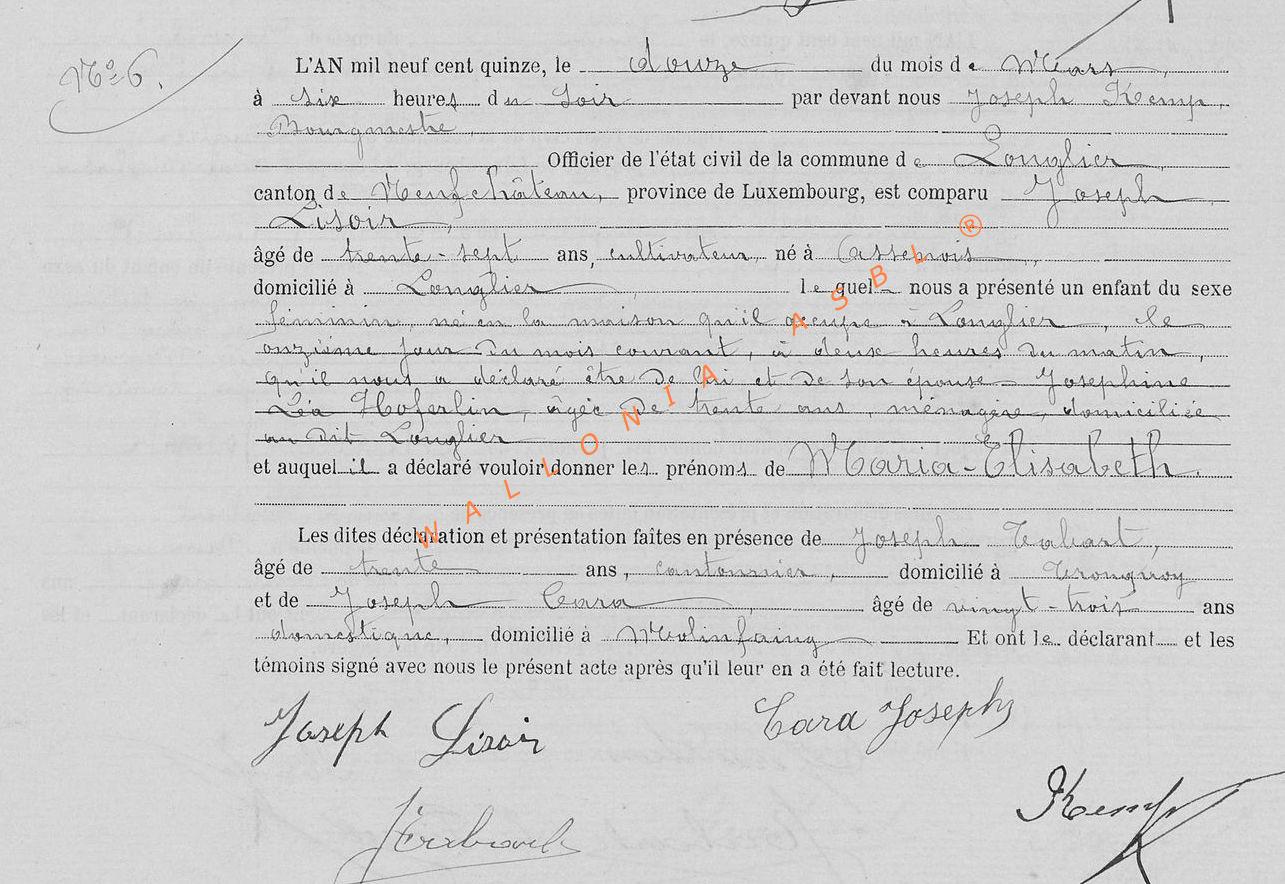 N° 6.
L'AN mil neuf cent quinze, le douze du mois de Mars,
à six heures du Soir par devant nous Joseph Kemp,
Bourgmestre,
Officier de l'état civil de la commune de Longlier,
canton de Neufchâteau, province de Luxembourg, est comparu Joseph
Lisoir,
âgé de trente-sept ans, cultivateur, né à Assenois,
domicilié à Longlier, lequel nous a présenté un enfant du sexe
féminin, né en la maison qu'il occupe à Longlier, le
onzième jour du mois courant, à deux heures du matin,
qu'il nous a déclaré être de lui et de son épouse Joséphine
Léa Hoferlin, âgée de trente ans, ménagère, domiciliée
au dit Longlier
et auquel il a déclaré vouloir donner les prénoms de Maria-Elisabeth.
Les dites déclaration et présentation faites en présence de Joseph
âgé de trente ans, cantonnier, domicilié à Tronquoy
et de Joseph Cara, âgé de vingt-trois ans
domestique, domicilié à Molinfaing Et ont le déclarant et les
témoins signé avec nous le présent acte après qu'il leur en a été fait lecture.
Joseph Lisoir
Cara Joseph
Kemp
WALLONIA ASBL ®